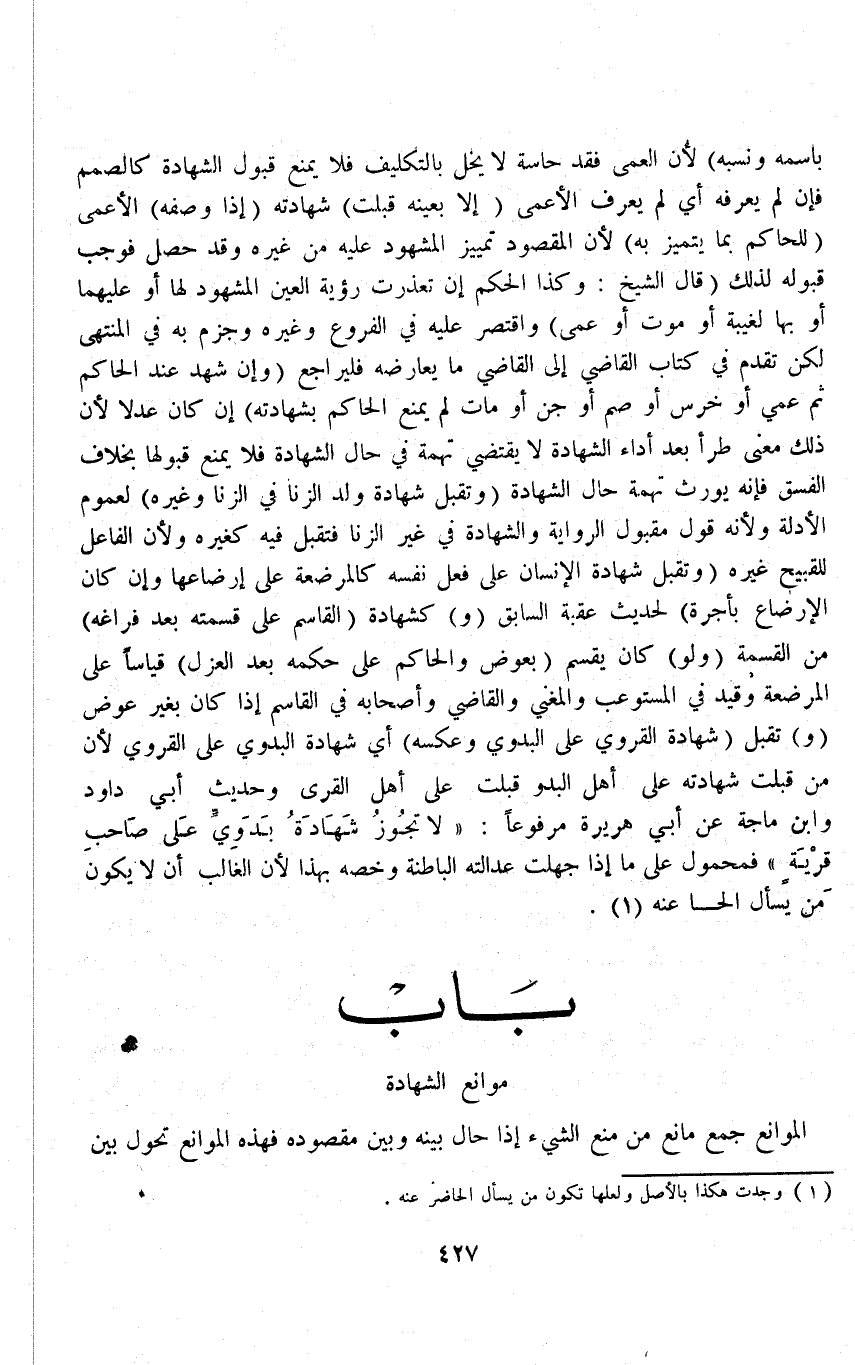 باسمه ونسبه) لأن العمى فقد حاسة لا يخل بالتكليف فلا يمنع قبول الشهادة كالصمم
فإن لم يعرفه أي لم يعرف الأعمى ( إلا بعينه قبلت) شهادته (إذا وصفه) الأعمى
( للحاكم بما يتميز به) لأن المقصود تمييز المشهود عليه من غيره وقد حصل فوجب
قبوله لذلك ( قال الشيخ : وكذا الحكم إن تعذرت رؤية العين المشهود لها أو عليهما
أو بها لغيبة أو موت أو عمى) واقتصر عليه في الفروع وغيره وجزم به في المنتهى
لكن تقدم في كتاب القاضي إلى القاضي ما يعارضه فليراجع ( وإن شهد عند الحاكم
ثم عمي أو خرس أو صم أو جن أو مات لم يمنع الحاكم بشهادته) إن كان عدلا لأن
ذلك معنى طرأ بعد أداء الشهادة لا يقتضي تهمة في حال الشهادة فلا يمنع قبولها بخلاف
الفسق فإنه يورث تهمة حال الشهادة ( وتقبل شهادة ولد الزنا في الزنا وغيره) لعموم
الأدلة ولأنه قول مقبول الرواية والشهادة في غير الزنا فتقبل فيه كغيره ولأن الفاعل
للقبيح غيره ( وتقبل شهادة الإنسان على فعل نفسه كالمرضعة على إرضاعها وإن كان
الإرضاع بأجرة) لحديث عقبة السابق (و) كشهادة ( القاسم على قسمته بعد فراغه)
من القسمة ( ولو) كان يقسم ( بعوض والحاكم على حكمه بعد العزل) قياساً على
المرضعة وُقيد في المستوعب والمغني والقاضي وأصحابه في القاسم إذا كان بغير عوض
(و) تقبل ( شهادة القروي على البدوي وعكسه) أي شهادة البدوي على القروي لأن
من قبلت شهادته على أهل البدو قبلت على أهل القرى وحديث أبي داود
وابن ماجة عن أبي هريرة مرفوعاً : « لا تجُوزُ شَهَادَةُ بَدَوِيٍّ عَلى صَاحبِ
قَرْيَة » فمحمول على ما إذا جهلت عدالته الباطنة وخصه بهذا لأن الغالب أن لا يكون
مَن يَسأل الحا عنه (١) .
بَابْ
موانع الشهادة
الموانع جمع مانع من منع الشيء إذا حال بينه وبين مقصوده فهذه الموانع تحول بين
( ١ ) وجدت هكذا بالأصل ولعلها تكون من يسأل الحاضر عنه .
٤٢٧